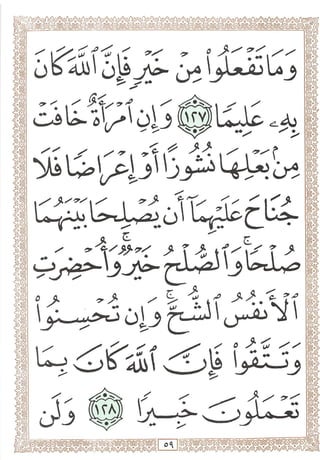 وَمَا تَفْعَلُوا۟ مِنْ خَيْرٍۢ فَإِنَّ ٱللَّهَ كَانَ
بِهِۦ عَلِيمًا ١٢٧ وَإِنِ ٱمْرَأَةٌ خَافَتْ
مِنۢ بَعْلِهَا نُشُوزًا أَوْ إِعْرَاضًا فَلَا
جُنَاحَ عَلَيْهِمَآ أَن يُصْلِحَا بَيْنَهُمَا
صُلْحًا ۚ وَٱلصُّلْحُ خَيْرٌ ۗ وَأُحْضِرَتِ
ٱلْأَنفُسُ ٱلشُّحَّ ۚ وَإِن تُحْسِنُوا۟
وَتَتَّقُوا۟ فَإِنَّ ٱللَّهَ كَانَ بِمَا
تَعْمَلُونَ خَبِيرًا ١٢٨ وَلَن
٥٩